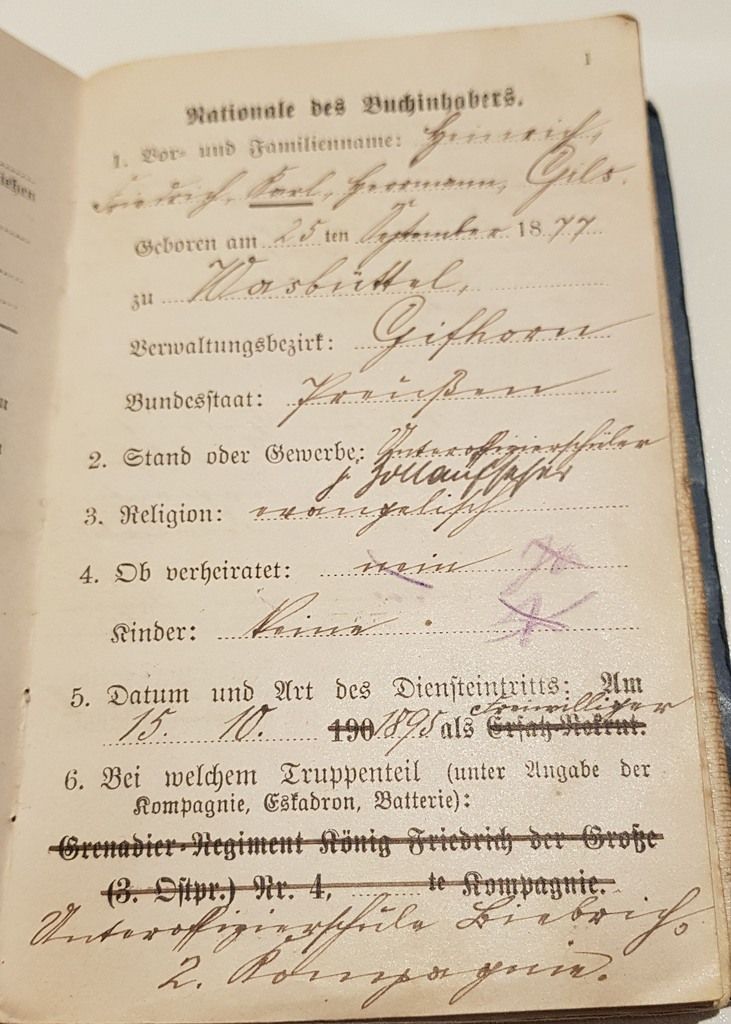 1
Nationale des Buchinhabers.
1. Vor- und Familienname: Heinrich,
Friedrich, Karl, Herrmann, Gils.
Geboren am 25 ten September 1877
zu Wasbüttel,
Verwaltungsbezirk: Gifhorn
Bundesstaat: Preußen
2. Stand oder Gewerbe: Unteroffizierschüler
j. Zollaufseher
3. Religion: evangelisch
4. Ob verheiratet: nein
Kinder: keine.
5. Datum und Art des Diensteintritts: Am
Freiwilliger
15. 10. 190 1895 als Ersatz-Rekrut.
6. Bei welchem Truppenteil (unter Angabe der
Kompagnie, Eskadron, Batterie):
Grenadier-Regiment König Friedrich der Große
(3. Ostpr.) Nr. 4, te Kompagnie.
Unteroffizierschule Biebrich,
2. Kompagnie.